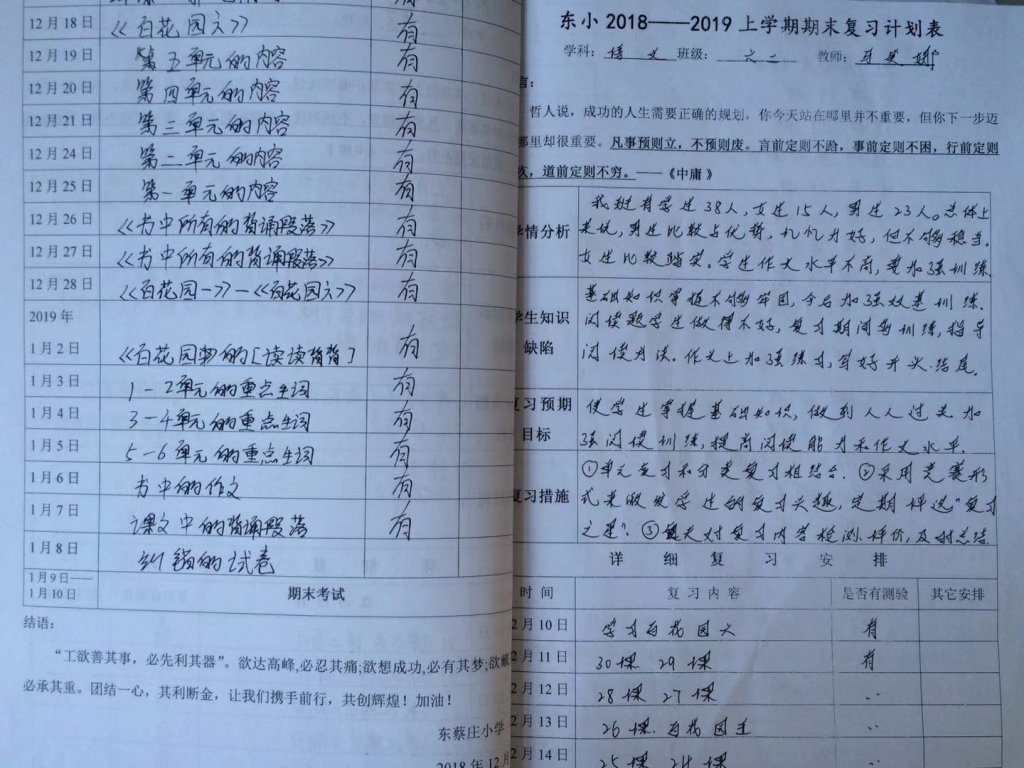 12月18日 《百花园六》 有
12月19日 第五单元的内容 有
12月20日 第四单元的内容 有
12月21日 第三单元的内容 有
12月24日 第二单元的内容 有
12月25日 第一单元的内容 有
12月26日 《书中所有的背诵段落》 有
12月27日 《书中所有的背诵段落》 有
12月28日 《百花园一》—《百花园六》 有
2019年
1月2日 《百花园》的[读读背背] 有
1月3日 1-2单元的重点生词 有
1月4日 3-4单元的重点生词 有
1月5日 5-6单元的重点生词 有
1月6日 书中的作文 有
1月7日 课文中的背诵段落 有
1月8日 纠错的试卷
1月9日——
1月10日 期末考试
结语:
“工欲善其事，必先利其器”。欲达高峰,必忍其痛;欲想成功,必有其梦;欲戴
必承其重。团结一心，其利断金，让我们携手前行，共创辉煌！加油！
东蔡庄小学
2018年12月
东小2018——2019上学期期末复习计划表
学科：语文 班级：六二 教师：
言：
哲人说，成功的人生需要正确的规划，你今天站在哪里并不重要，但你下一步迈
那里却很重要。凡事预则立，不预则废。言前定则不跲，事前定则不困，行前定则
疚，道前定则不穷。——《中庸》
学情分析
我班有学生38人,女生15人,男生23人。总体上
来说,男生比较占优势,机机为好,但不够稳当。
女生比较踏实。学生作文水平不高,要加强训练
学生知识
缺陷
基础知识掌握不够牢固,今后加强双基训练.
阅读题学生做得不好,复习期间多训练,指导
阅读方法。作文上加强练习,写好开头.结尾.
复习预期
目标
使学生掌握基础知识,做到人人过关加
强阅读训练,提高阅读能力和作文水平.
复习措施
①单元复习和分类复习相结合.②采用竞赛形
式来激发学生的复习兴趣,定期评选“复习
之星”.③每天对复习内容检测.评价,及时总结
详 细 复 习 安 排
时间 复习内容 是否有测验 其它安排
2月10日 学习百花园六 有
2月11日 30课 29课 有
2月12日 28课 27课 ··
2月13日 26课 百花园五 ··
2月14日 25课 24课 ··